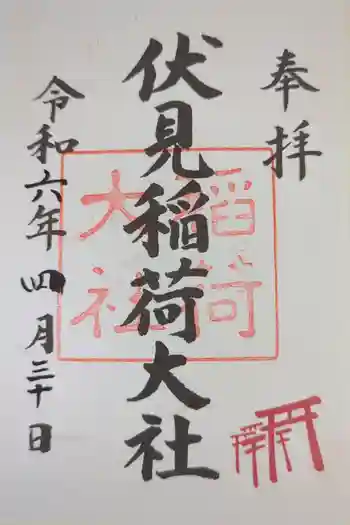 奉拝
伏見稲荷大社
令和六年四月三十日
稲荷
大社